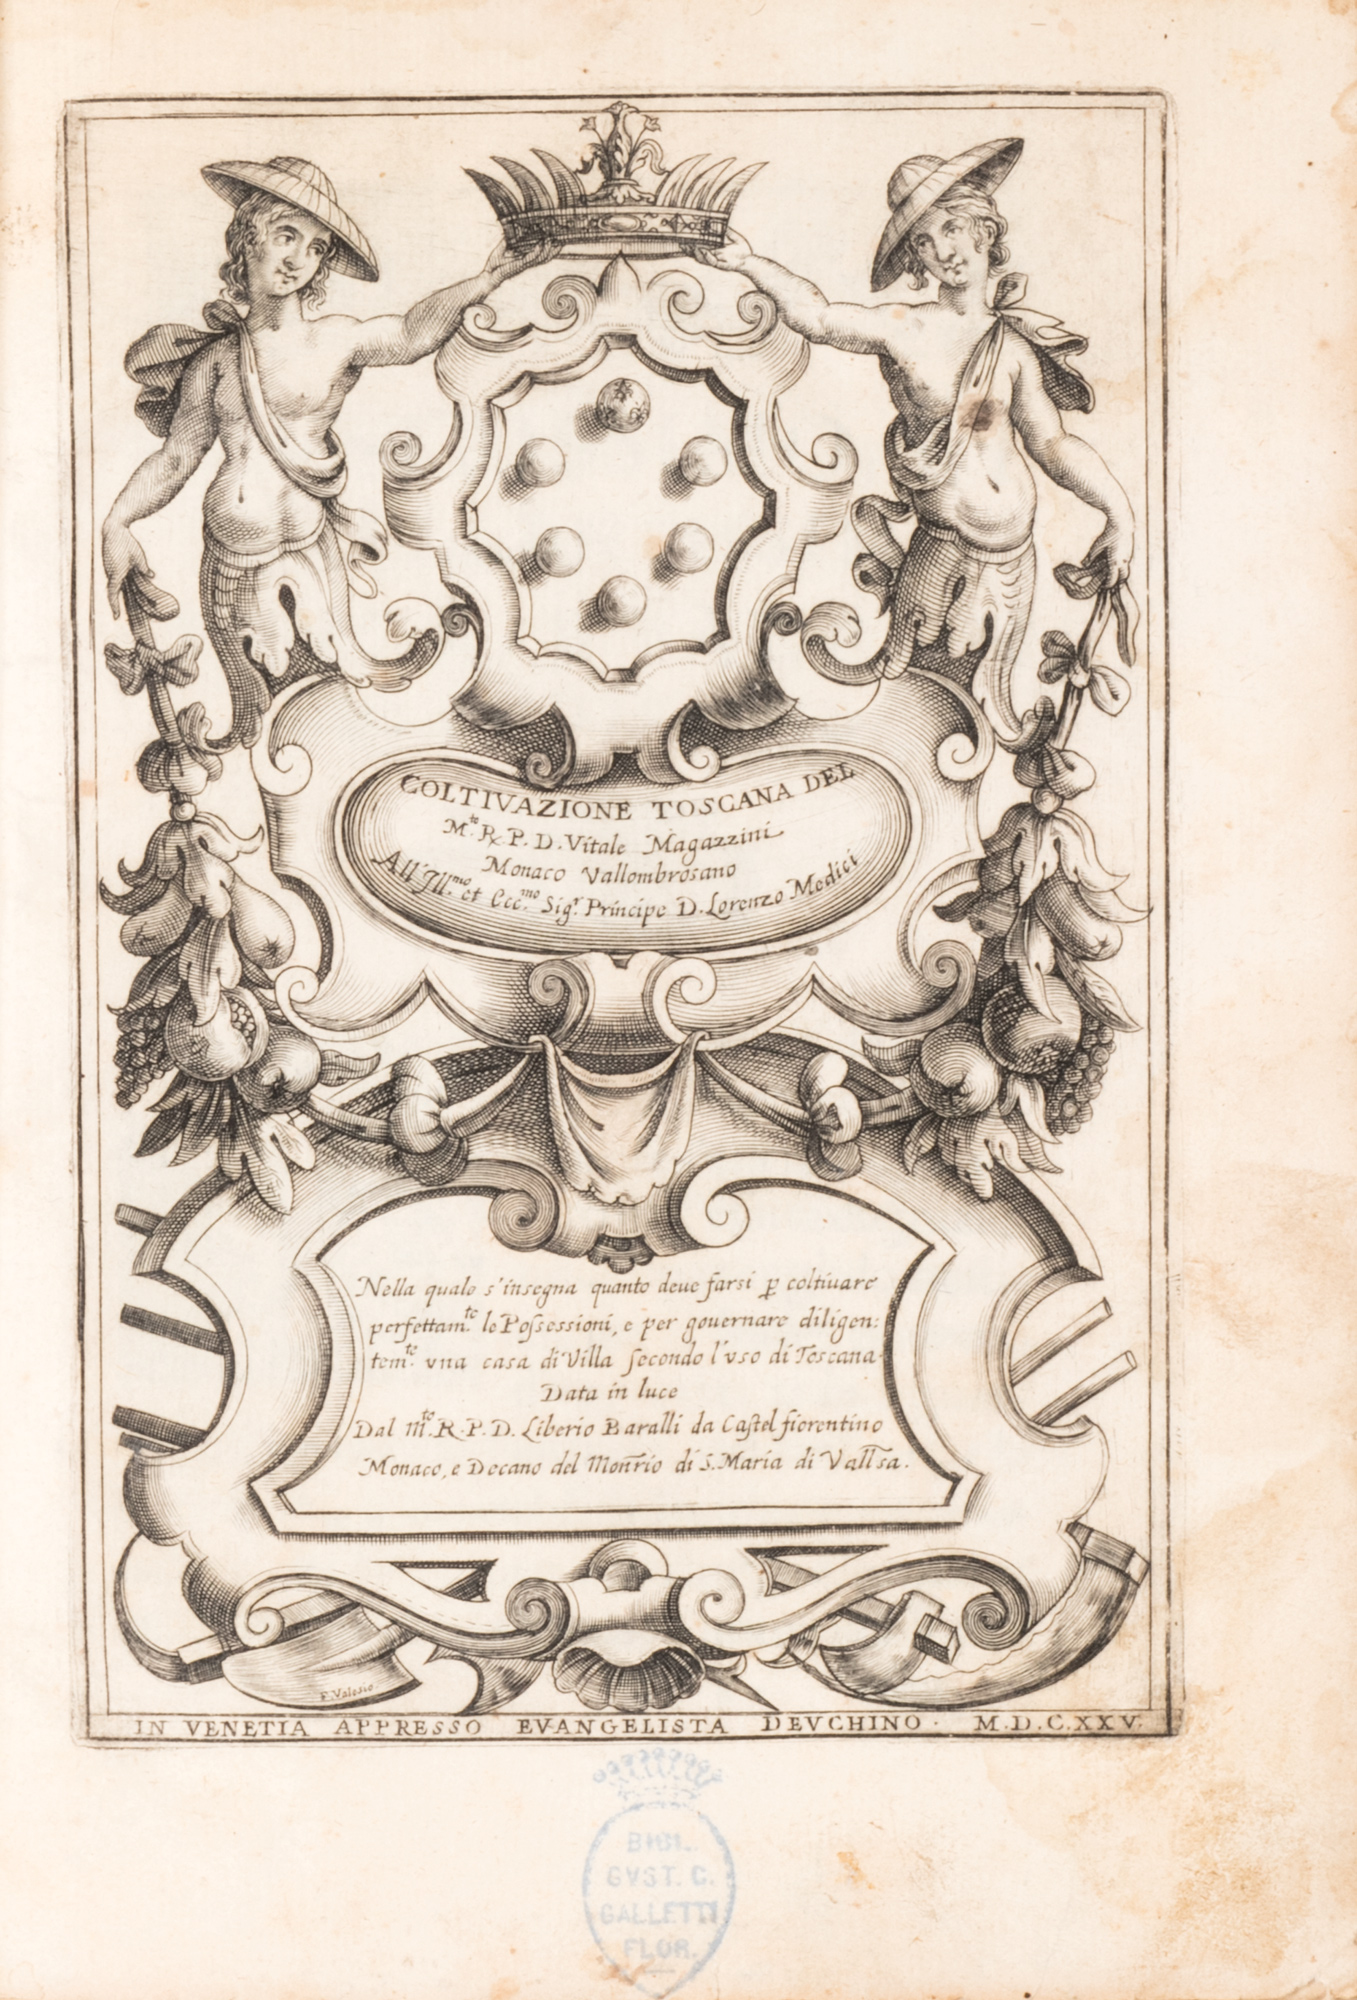 COLTIVAZIONE TOSCANA DEL
M.to R. P. D. Vitale Magazzini
Monaco Vallombrosano
All'Ill.mo et Ecc.mo Sig.r Principe D. Lorenzo Medici
Nella quale s'insegna quanto deue farsi ꝑ coltiuare
perfettam.te le Poſsessioni, e per gouernare diligen:
tem.te vna casa di Villa ſecondo l'vso di Toscana
Data in luce
Dal M.to R. P. D. Liberio Baralli da Caſtel fiorentino
Monaco, e Decano del Mon̄rio di S. Maria di Vall̄sa.
F. Valesio.
IN VENETIA APPRESSO EVANGELISTA DEVCHINO. M.D.C.XXV.
BIBL.
GVST. C.
GALLETTI
FLOR.